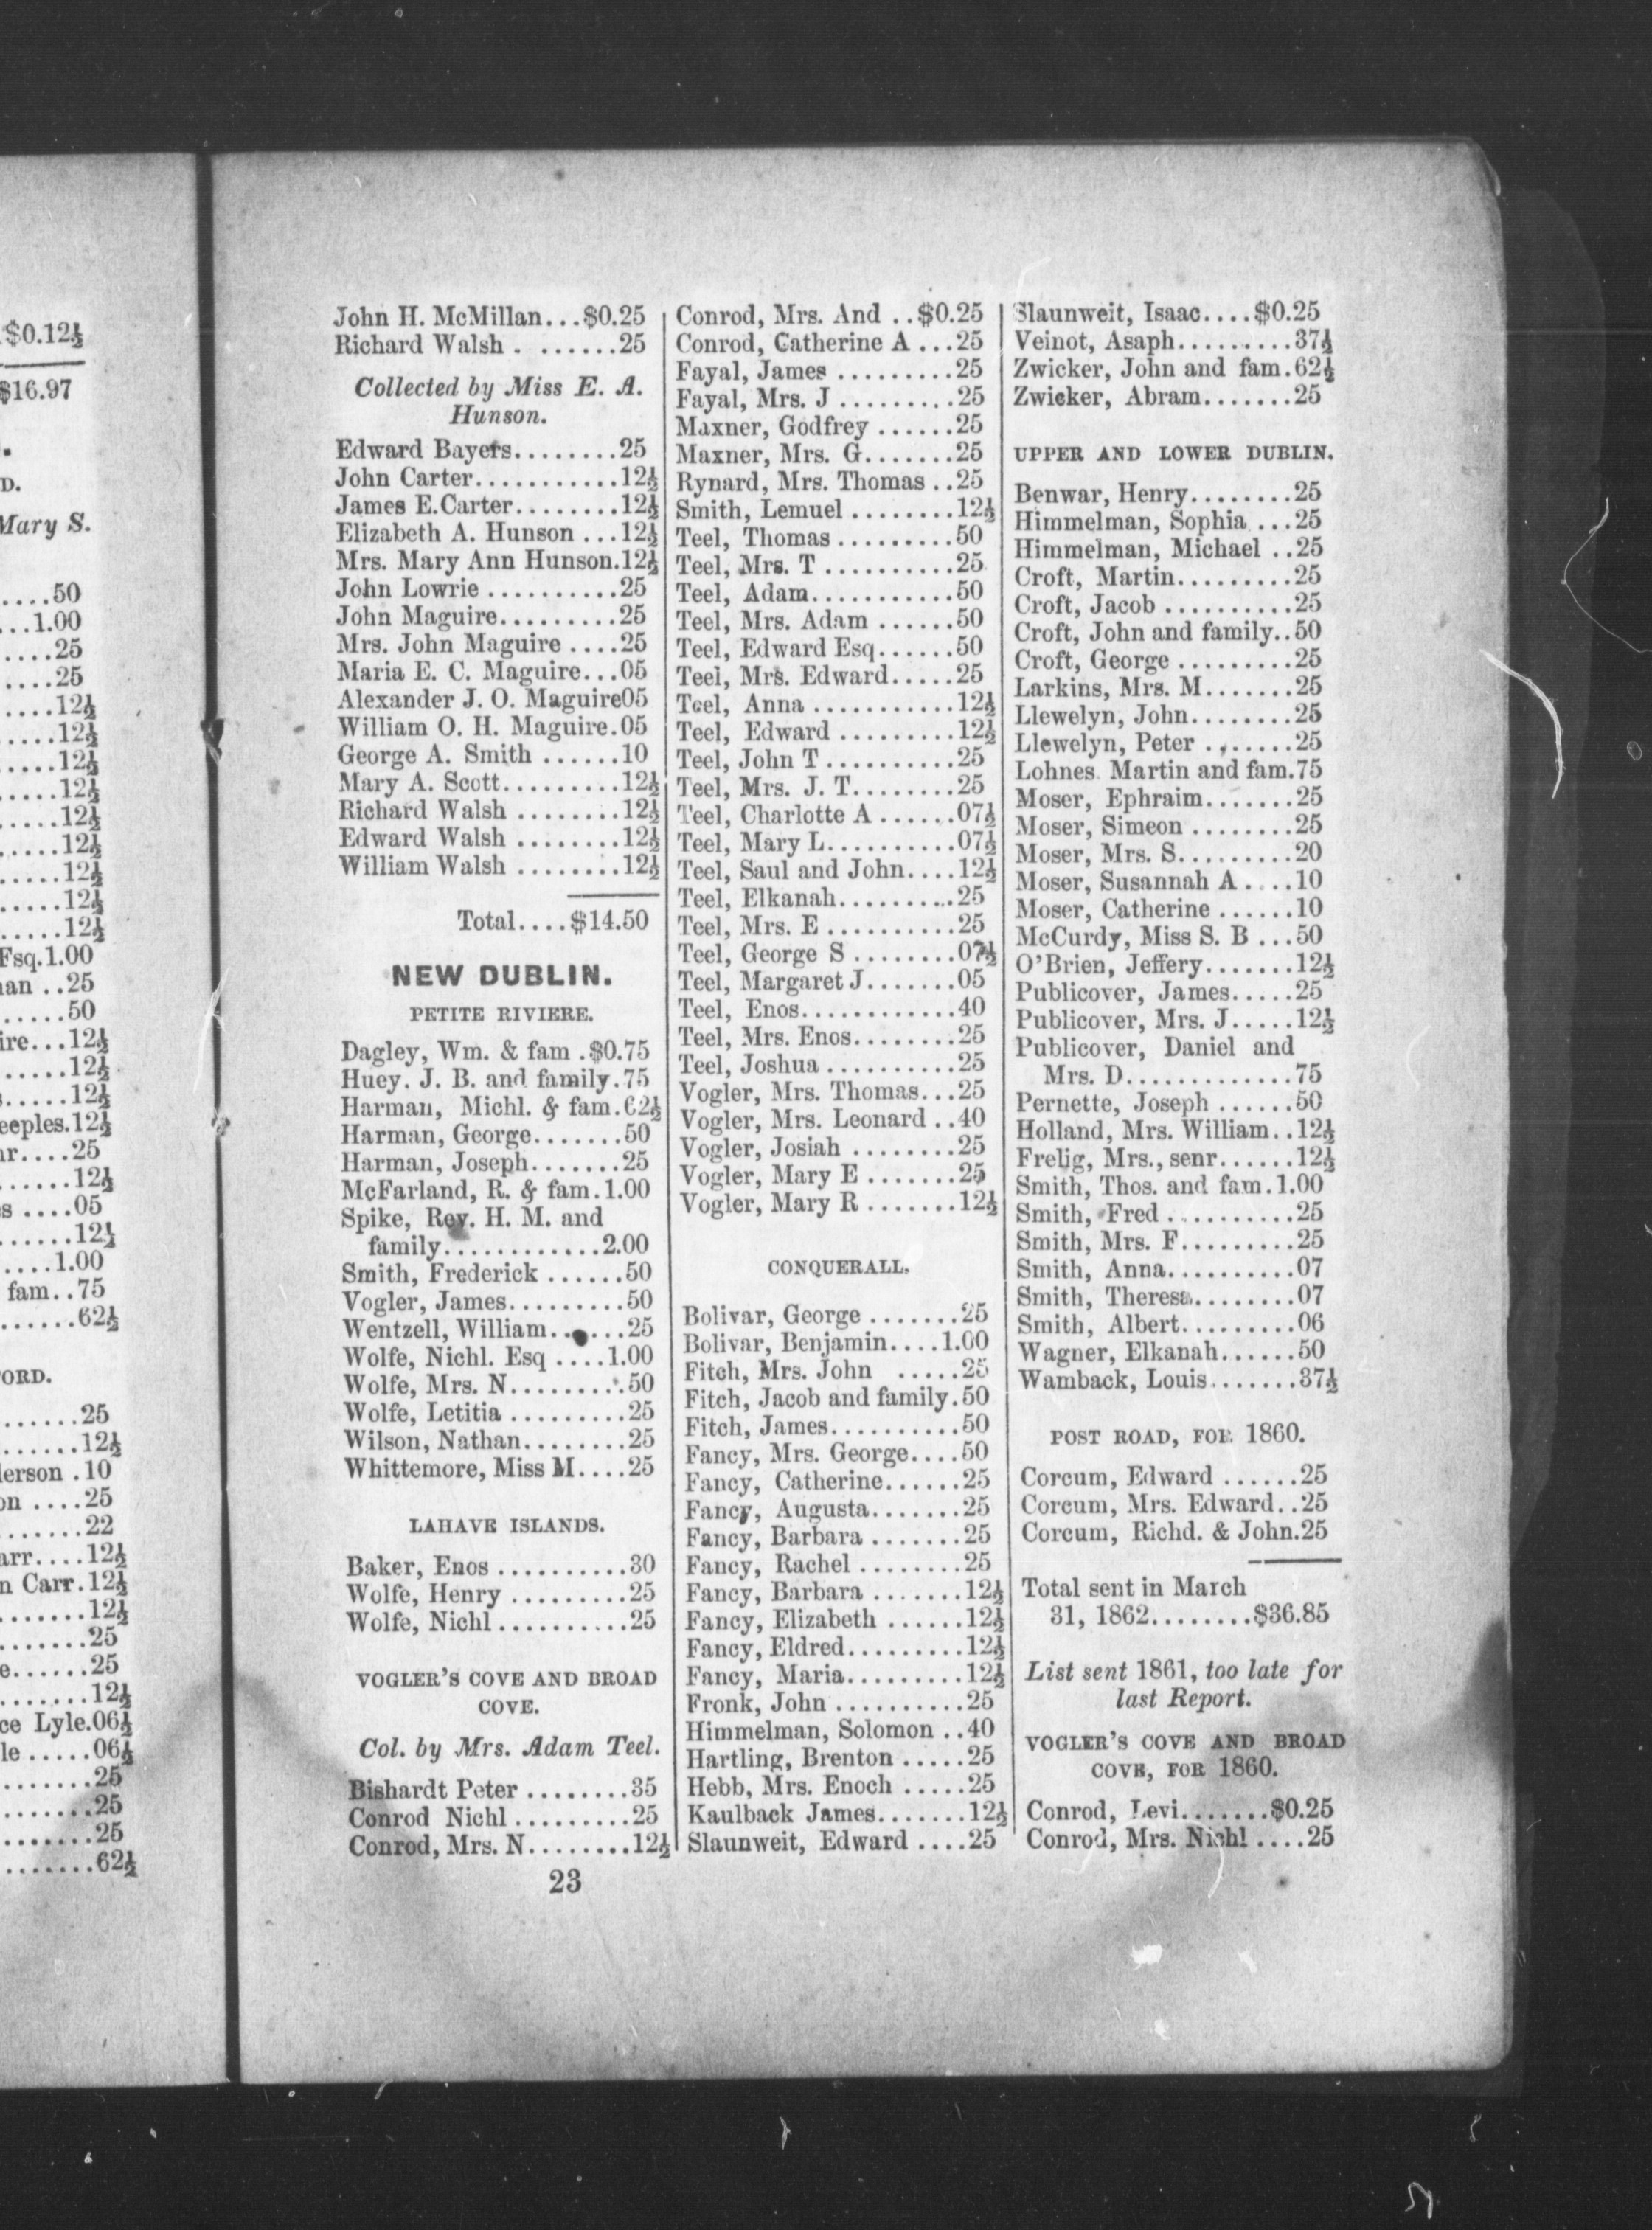 $0.12½
$16.97
D.
Mary S.
....50
...1.00
....25
....25
....12½
.....12½
.....12½
.....12½
.....12½
.....12½
.....12½
.....12½
.....12½
Fsq.1.00
an ..25
.....50
ire...12½
.....12½
.....12½
eeples.12½
r....25
......12½
s ....05
......12½
....1.00
fam..75
......62½
ORD.
.......25
......12½
erson .10
on ....25
.......22
arr....12½
n Carr.12½
.......12½
.......25
e......25
.......12½
ce Lyle.06½
le .....06½
........25
........25
........25
.......62½
John H. McMillan...$0.25
Richard Walsh . ......25
Collected by Miss E. A.
Hunson.
Edward Bayers........25
John Carter...........12½
James E.Carter........12½
Elizabeth A. Hunson ...12½
Mrs. Mary Ann Hunson.12½
John Lowrie ..........25
John Maguire.........25
Mrs. John Maguire ....25
Maria E. C. Maguire...05
Alexander J. O. Maguire05
William O. H. Maguire.05
George A. Smith ......10
Mary A. Scott.........12½
Richard Walsh ........12½
Edward Walsh ........12½
William Walsh ........12½
Total....$14.50
NEW DUBLIN.
PETITE RIVIERE.
Dagley, Wm. & fam .$0.75
Huey. J. B. and family.75
Harman, Michl. & fam.62½
Harman, George.......50
Harman, Joseph.......25
McFarland, R. & fam.1.00
Spike, Rev. H. M. and
family............2.00
Smith, Frederick ......50
Vogler, James.........50
Wentzell, William......25
Wolfe, Nichl. Esq ....1.00
Wolfe, Mrs. N.........50
Wolfe, Letitia .........25
Wilson, Nathan........25
Whittemore, Miss M....25
LAHAVE ISLANDS.
Baker, Enos ..........30
Wolfe, Henry .........25
Wolfe, Nichl ..........25
VOGLER'S COVE AND BROAD
COVE.
Col. by Mrs. Adam Teel.
Bishardt Peter ........35
Conrod Nichl .........25
Conrod, Mrs. N........12½
Conrod, Mrs. And ..$0.25
Conrod, Catherine A ...25
Fayal, James .........25
Fayal, Mrs. J .........25
Maxner, Godfrey ......25
Maxner, Mrs. G.......25
Rynard, Mrs. Thomas ..25
Smith, Lemuel ........12½
Teel, Thomas .........50
Teel, Mrs. T ..........25
Teel, Adam...........50
Teel, Mrs. Adam ......50
Teel, Edward Esq......50
Teel, Mrs. Edward.....25
Teel, Anna ...........12½
Teel, Edward .........12½
Teel, John T ..........25
Teel, Mrs. J. T........25
Teel, Charlotte A ......07½
Teel, Mary L..........07½
Teel, Saul and John....12½
Teel, Elkanah..........25
Teel, Mrs. E ..........25
Teel, George S ........07½
Teel, Margaret J.......05
Teel, Enos............40
Teel, Mrs. Enos........25
Teel, Joshua ..........25
Vogler, Mrs. Thomas...25
Vogler, Mrs. Leonard ..40
Vogler, Josiah ........25
Vogler, Mary E .......25
Vogler, Mary R .......12½
CONQUERALL.
Bolivar, George .......25
Bolivar, Benjamin....1.00
Fitch, Mrs. John .....25
Fitch, Jacob and family.50
Fitch, James..........50
Fancy, Mrs. George....50
Fancy, Catherine......25
Fancy, Augusta.......25
Fancy, Barbara .......25
Fancy, Rachel ........25
Fancy, Barbara .......12½
Fancy, Elizabeth ......12½
Fancy, Eldred.........12½
Fancy, Maria.........12½
Fronk, John ..........25
Himmelman, Solomon ..40
Hartling, Brenton .....25
Hebb, Mrs. Enoch .....25
Kaulback James.......12½
Slaunweit, Edward ....25
Slaunweit, Isaac....$0.25
Veinot, Asaph.........37½
Zwicker, John and fam.62½
Zwicker, Abram.......25
UPPER AND LOWER DUBLIN.
Benwar, Henry........25
Himmelman, Sophia ...25
Himmelman, Michael ..25
Croft, Martin.........25
Croft, Jacob ..........25
Croft, John and family..50
Croft, George .........25
Larkins, Mrs. M.......25
Llewelyn, John........25
Llewelyn, Peter .......25
Lohnes Martin and fam.75
Moser, Ephraim.......25
Moser, Simeon ........25
Moser, Mrs. S.........20
Moser, Susannah A ....10
Moser, Catherine ......10
McCurdy, Miss S. B ...50
O'Brien, Jeffery.......12½
Publicover, James.....25
Publicover, Mrs. J.....12½
Publicover, Daniel and
Mrs. D.............75
Pernette, Joseph ......50
Holland, Mrs. William..12½
Frelig, Mrs., senr......12½
Smith, Thos. and fam.1.00
Smith, Fred ..........25
Smith, Mrs. F.........25
Smith, Anna..........07
Smith, Theresa........07
Smith, Albert.........06
Wagner, Elkanah......50
Wamback, Louis.......37½
POST ROAD, FOR 1860.
Corcum, Edward ......25
Corcum, Mrs. Edward..25
Corcum, Richd. & John.25
Total sent in March
31, 1862........$36.85
List sent 1861, too late for
last Report.
VOGLER'S COVE AND BROAD
COVE, FOR 1860.
Conrod, Levi.......$0.25
Conrod, Mrs. Nichl ....25
23